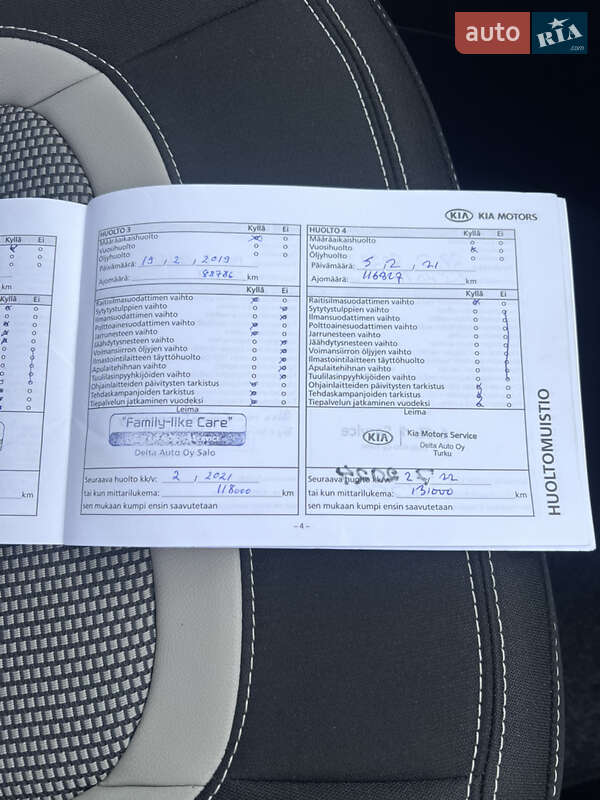 auto RIA.com
KIA KIA MOTORS
Kyllä Ei
km
Kyllä Ei
km
HUOLTO 3 Kyllä Ei
Määräaikaishuolto
Vuosihuolto
Öljyhuolto
Päivämäärä: 19, 2, 2019
Ajomäärä: 88786 km
Kyllä Ei
Raitisilmasuodattimen vaihto
Sytytystulppien vaihto
Ilmansuodattimen vaihto
Polttoainesuodattimen vaihto
Jarrunesteen vaihto
Jäähdytysnesteen vaihto
Voimansiirron öljyjen vaihto
Ilmastointilaitteen täyttöhuolto
Apulaitehihnan vaihto
Tuulilasinpyyhkijöiden vaihto
Ohjainlaitteiden päivitysten tarkistus
Tehdaskampanjoiden tarkistus
Tiepalvelun jatkaminen vuodeksi
Leima
"Family-like Care"
Delta Auto Oy Salo
Seuraava huolto kk/v: 2, 2021
tai kun mittarilukema: 118000 km
sen mukaan kumpi ensin saavutetaan
HUOLTO 4 Kyllä Ei
Määräaikaishuolto
Vuosihuolto
Öljyhuolto
Päivämäärä: 5, 2, 21
Ajomäärä: 116827 km
Kyllä Ei
Raitisilmasuodattimen vaihto
Sytytystulppien vaihto
Ilmansuodattimen vaihto
Polttoainesuodattimen vaihto
Jarrunesteen vaihto
Jäähdytysnesteen vaihto
Voimansiirron öljyjen vaihto
Ilmastointilaitteen täyttöhuolto
Apulaitehihnan vaihto
Tuulilasinpyyhkijöiden vaihto
Ohjainlaitteiden päivitysten tarkistus
Tehdaskampanjoiden tarkistus
Tiepalvelun jatkaminen vuodeksi
Leima
KIA Kia Motors Service
Delta Auto Oy
Turku
Seuraava huolto kk/v: 22
tai kun mittarilukema: 131000 km
sen mukaan kumpi ensin saavutetaan
– 4 –
HUOLTOMUISTIO